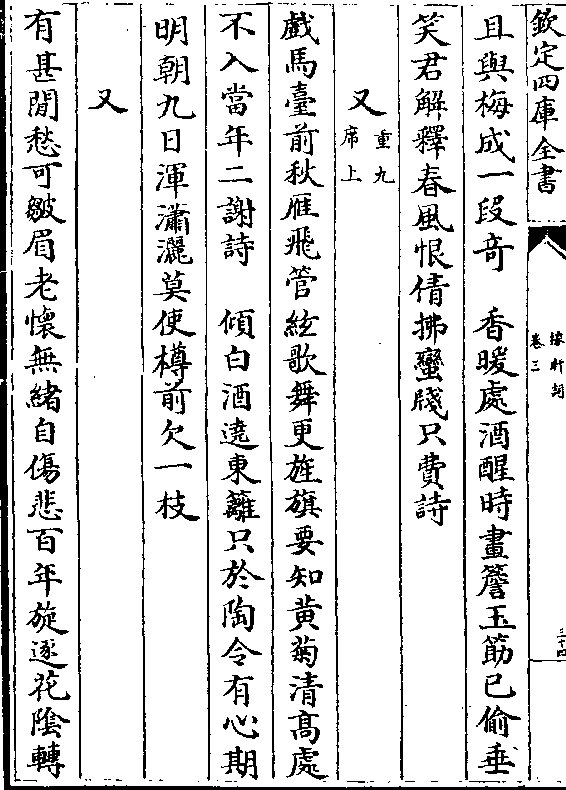 欽定四庫全書
稼軒詞
卷三
三十四
且與梅成一段竒　香暖處酒醒時畫簷玉筯已偷垂
笑君解釋春風恨倩拂蠻牋只費詩
又重九席上
戲馬臺前秋雁飛管絃歌舞更旌旗要知黄菊清髙處
不入當年二謝詩　傾白酒遶東籬只於陶令有心期
明朝九日渾瀟灑莫使樽前欠一枝
又
有甚閒愁可皺眉老懷無緒自傷悲百年旋逐花陰轉